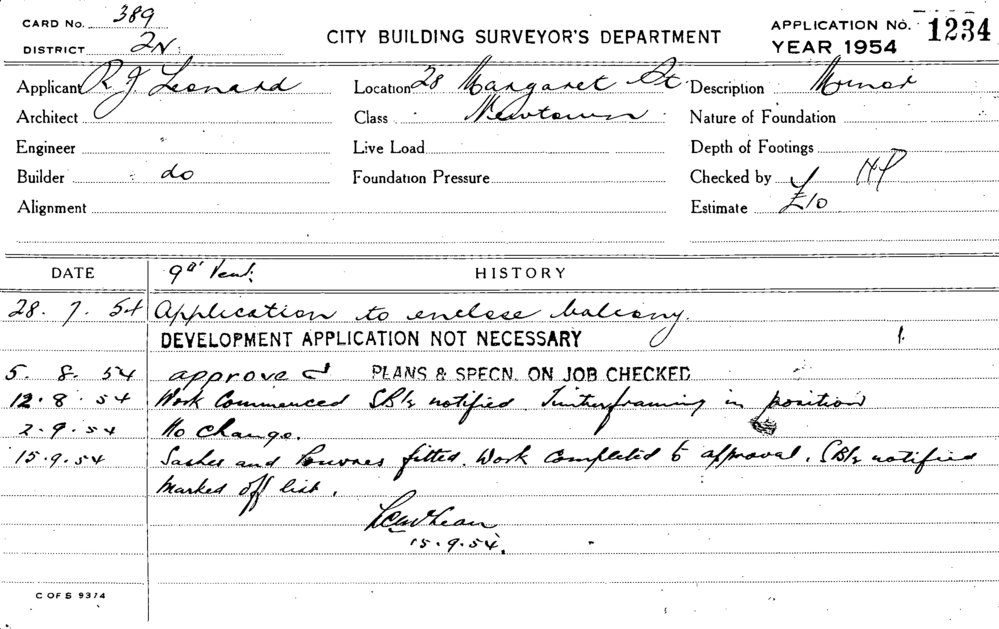 CARD No. 389
DISTRICT 2N.
CITY BUILDING SURVEYOR'S DEPARTMENT
APPLICATION No. 1234
YEAR 1954
Applicant R J Leonard
Location 28 Margaret St
Description Minor
Architect
Class Newtown
Nature of Foundation
Engineer
Live Load
Depth of Footings
Builder do
Foundation Pressure
Checked by HP
Alignment
Estimate £10
DATE
HISTORY
28. 7. 54 Application to enclose balcony.
DEVELOPMENT APPLICATION NOT NECESSARY 1.
5. 8. 54 approved PLANS & SPECN. ON JOB CHECKED
12.8.54 Work Commenced notified. Timber framing in position
2.9.54 No Change.
15.9.54 Sashes and Louvres fitted. Work Completed to approval. notified
Marked off list.
15.9.54.
C OF S 9374